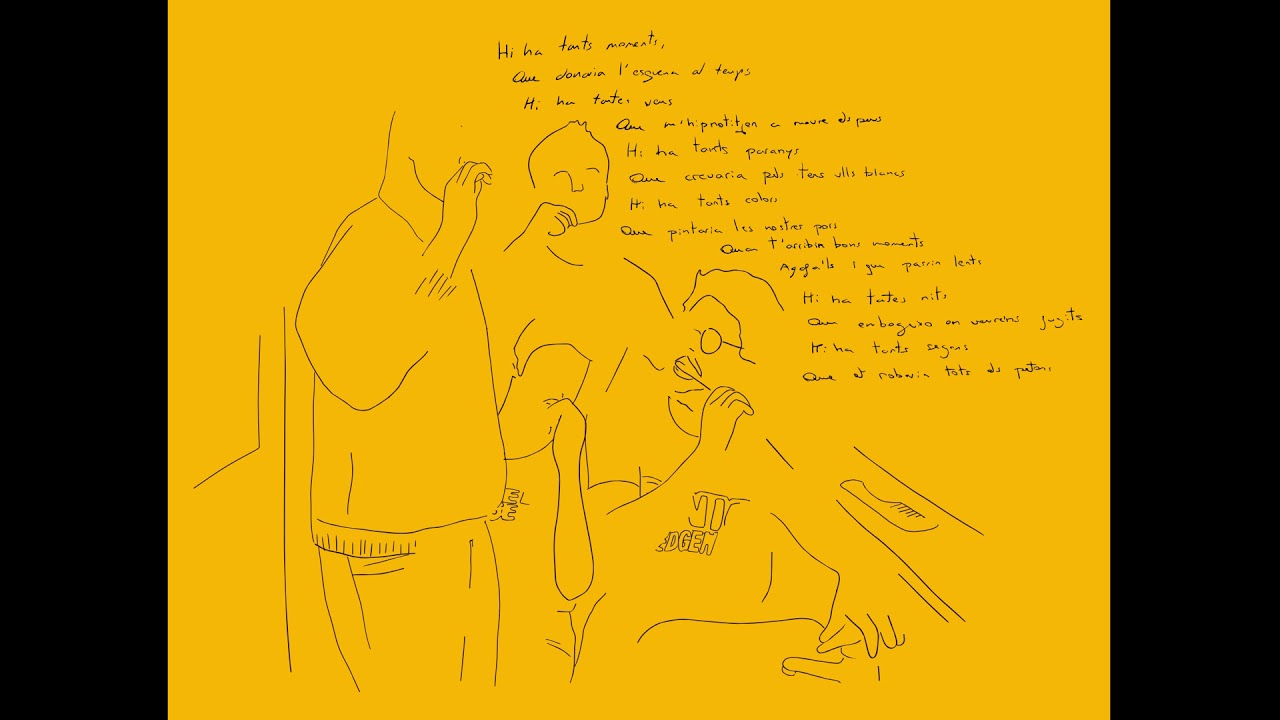 Hi ha tants moments,
Que donaria l'esquena al temps
Hi ha tantes veus
Que m'hipnotitzen a moure els peus
Hi ha tants paranys
Que creuaria pels teus ulls blancs
Hi ha tants colors
Que pintaria les nostres pors
Quan t'arribin bons moments
Agafa'ls i que passin lents
Hi ha tantes nits
Que embogeixo en veure'ns fugits
Hi ha tants segons
Que et robaria tots els petons
DGEM